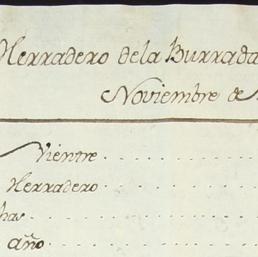 Herradero dela Burrada
Noviembre de
Vientre
Herradero
has
año